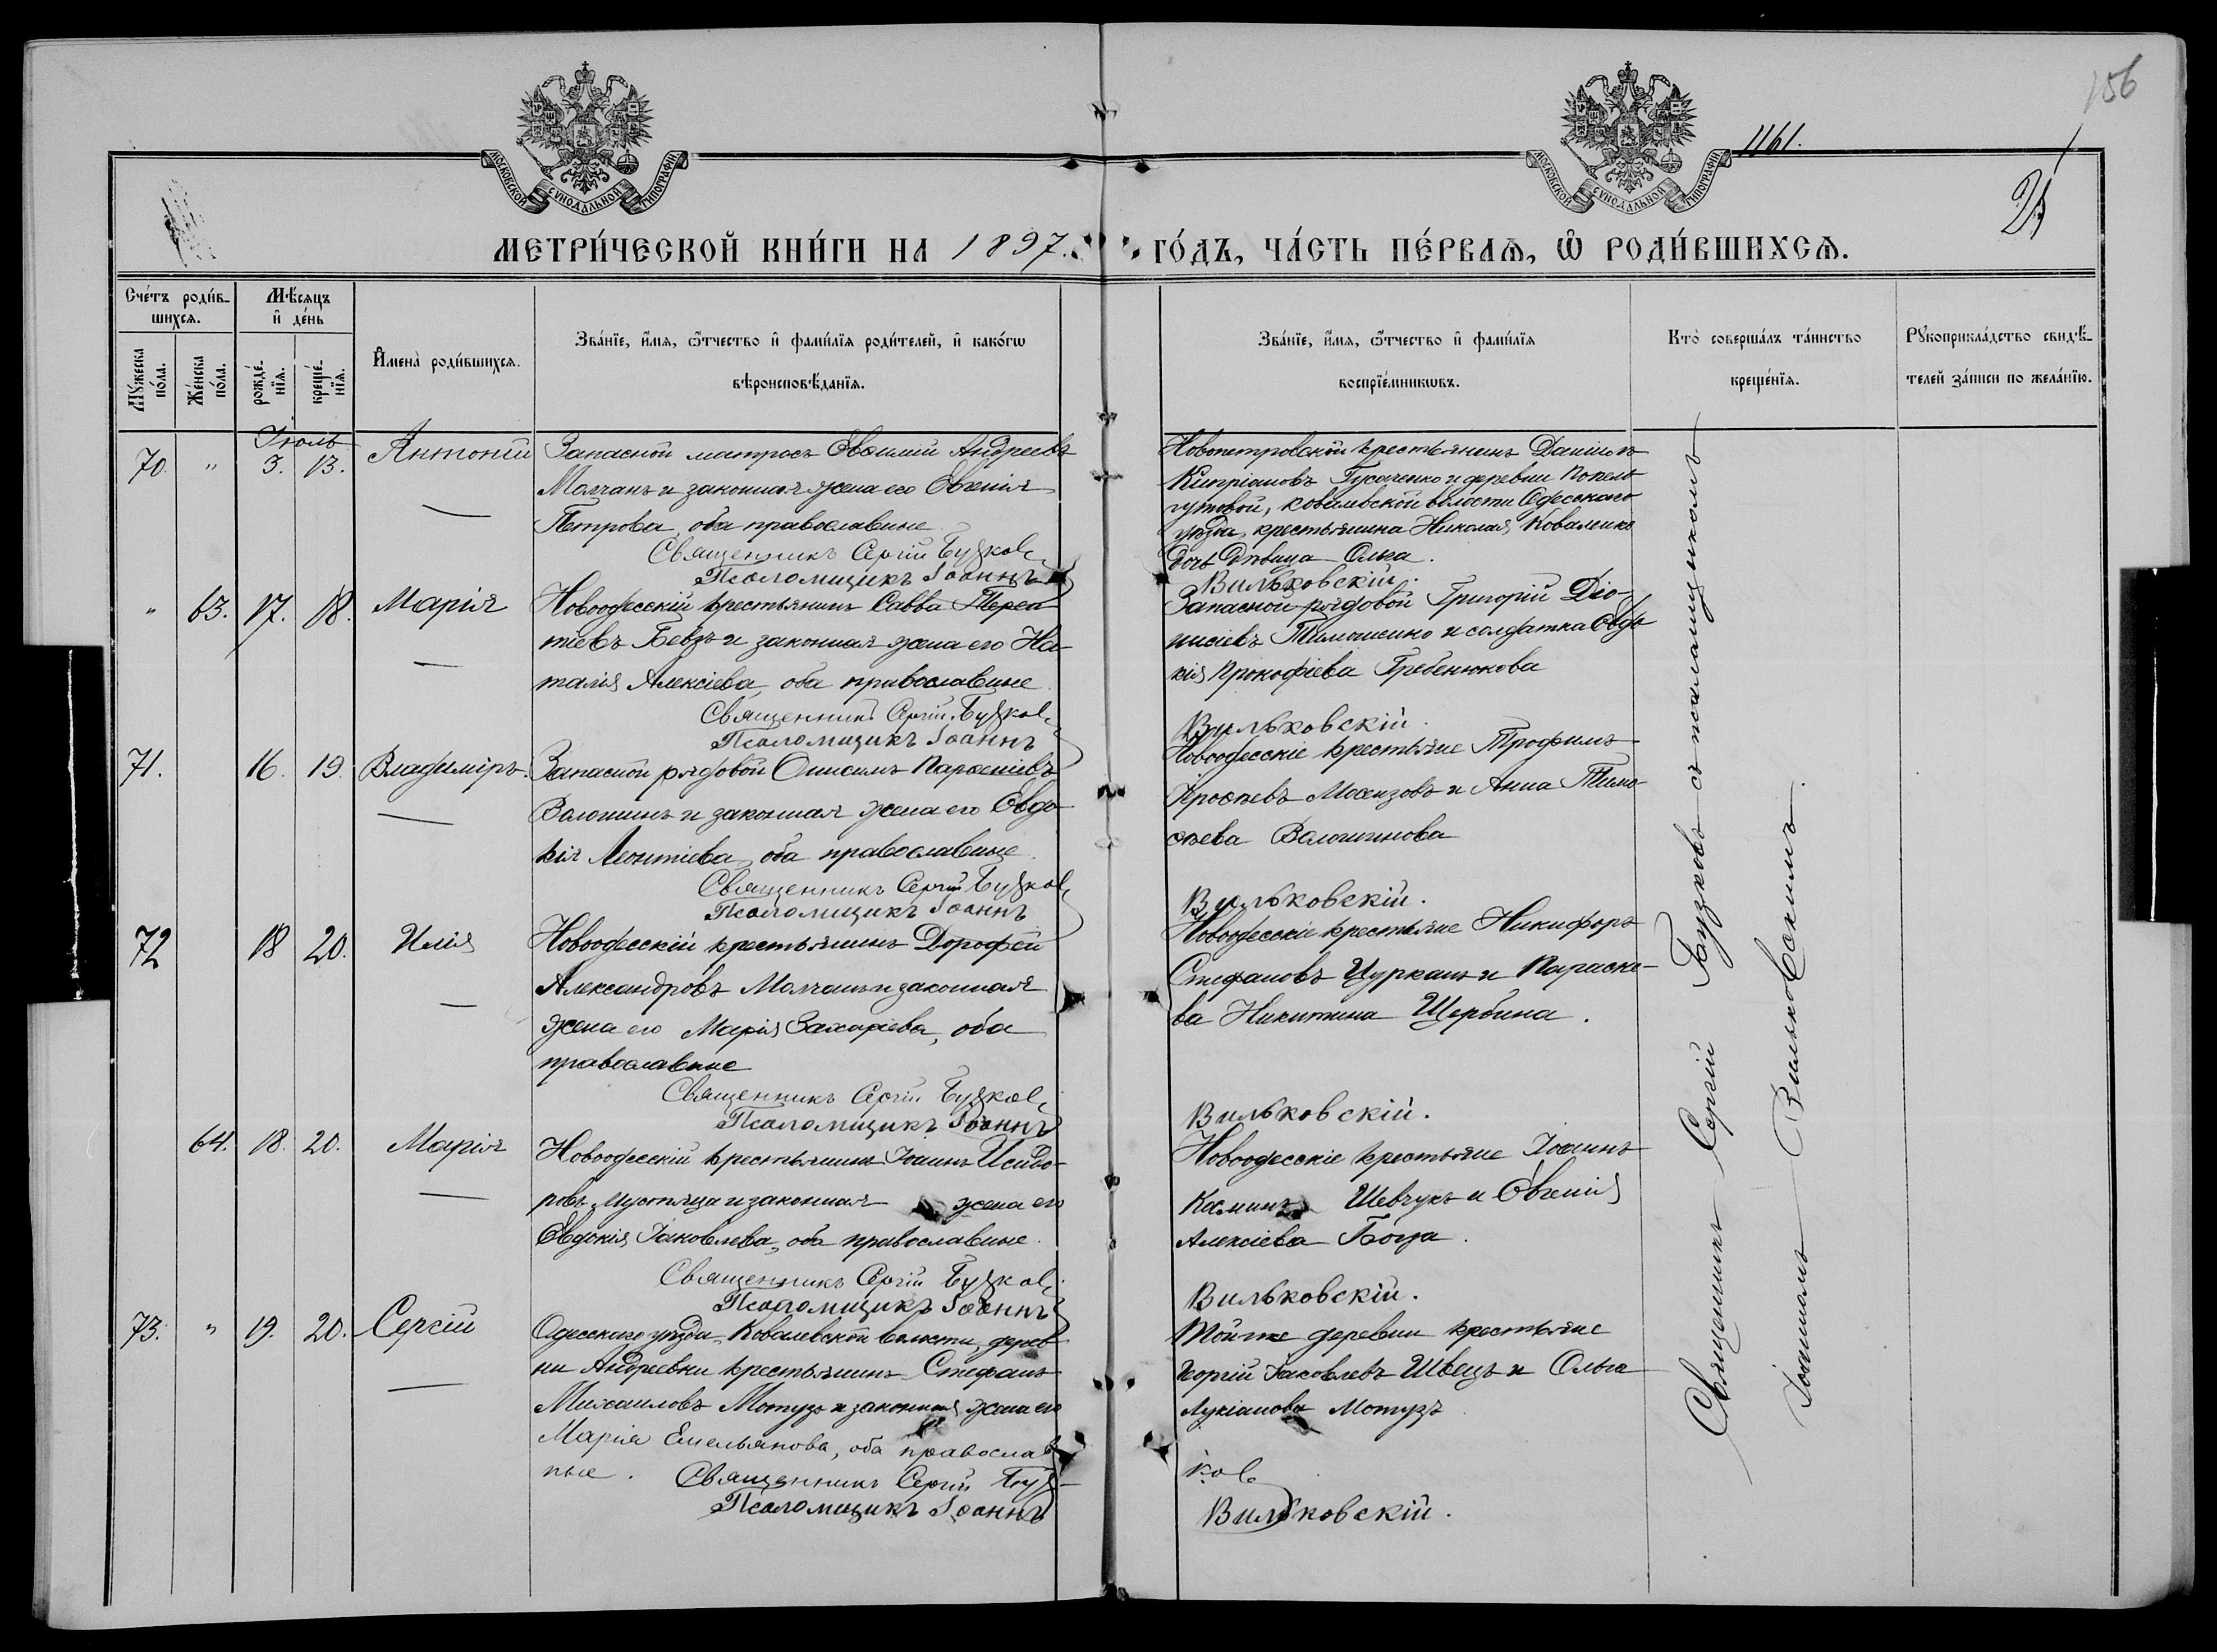 156
1161.
21
МОСКОВСКОЙ СУНОДАЛЬНОЙ ТИПОГРАФІИ
МОСКОВСКОЙ СУНОДАЛЬНОЙ ТИПОГРАФІИ
МЕТРИ́ЧЕСКОЙ КНИ́ГИ НА 1897. ГО́ДЪ, ЧА́СТЬ ПЕ́РВАѦ, Ѡ РОДИ́ВШИХСѦ.
Сче́тъ роди́в-
шихсѧ.
Мѣ́сѧцъ
и де́нь
Мꙋ́жеска по́ла.
Же́нска по́ла.
рожде́-
нїѧ.
креще́-
нїѧ.
Имена̀ роди́вшихсѧ.
Зва́нїе, и́мѧ, ѻ́тчество и фами́лїѧ роди́телей, и како́гѡ
вѣроисповѣ́данїѧ.
Зва́нїе, и́мѧ, ѻ́тчество и фами́лїѧ
воспрїе́мникѡвъ.
Кто̀ соверша́лъ та́инство
креще́нїѧ.
Рꙋкоприкла́дство свидѣ́-
телей за́писи по жела́нїю.
Іюль
70. " 3. 13. Антоній
Запасной матросъ Евѳимій Андреевъ
Молчанъ и законная жена его Евгенія
Петрова, оба православные
Священникъ Сергій Бузков
Псаломщикъ Іоаннъ
Новопетровскій крестьянинъ Даніилъ
Кипріановъ Гусаченко и деревни Попель-
нутовой, Ковалевской волости Одесскаго
уѣзда, крестьянина Николая Коваленко
дочь Дѣвица Ольга.
Вильковскій.
" 63. 17. 18. Марія
Новоодесскій крестьянинъ Савва Терен-
тіевъ Бевзъ и законная жена его На-
талія Алексіева, оба православные
Священникъ Сергій Бузков
Псаломщикъ Іоаннъ
Запасной рядовой Григорій Діо-
нисіевъ Тимошенко и солдатка Евдо-
кія Прокофіева Гребенюкова
Вильковскій.
71. 16. 19. Владиміръ.
Запасной рядовой Онисимъ Парѳеніевъ
Волошинъ и законная жена его Евдо-
кія Леонтіева, оба православные
Священникъ Сергій Бузков
Псаломщикъ Іоаннъ
Новоодесскіе крестьяне Трофимъ
Мосензовъ и Анна Тимо-
ѳеева Волошинова
Вильковскій.
72 18 20. Илія
Новоодесскій крестьянинъ Дорофей
Александровъ Молчанъ и законная
жена его Марія Захаріева, оба
православные
Священникъ Сергій Бузков
Псаломщикъ Іоаннъ
Новоодесскіе крестьяне Никифоръ
Стефановъ Цурканъ и Параске-
ва Никитина Щербина.
Вильковскій.
64. 18. 20. Марія
Новоодесскій крестьянинъ Іоаннъ Исидо-
ровъ Мустяца и законная жена его
Евдокія Іаковлева, оба православные.
Священникъ Сергій Бузков
Псаломщикъ Іоаннъ
Новоодесскіе крестьяне Іоаннъ
Косминъ Шевчукъ и Евгенія
Алексіева Боца.
Вильковскій.
73. " 19. 20. Сергій
Одесскаго уѣзда, Ковалевской волости, дерев-
ни Андреевки крестьянинъ Стефанъ
Михаиловъ Мотузъ и законная жена его
Марія Емельянова, оба православ-
ные. Священникъ Сергій Буз-
Псаломщикъ Іоаннъ
Тойже деревни крестьяне
Георгій Іаковлевъ Швецъ и Ольга
Лукіанова Мотузъ
ков
Вильковскій.
Священникъ Сергій Бузковъ съ псаломщикомъ
Іоанномъ Вильковскимъ.